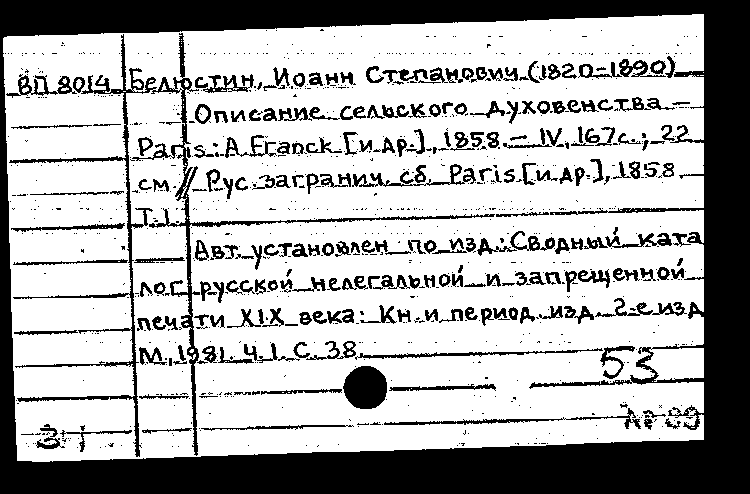 ВП 8014 Белюстин, Иоанн Степанович (1820-1890)
Описание сельского духовенства. —
Paris: A. Franck [и др.], 1858. — IV, 167с.; 22
см // Рус. загранич. сб. Paris [и др.], 1858.
Т. 1.
Авт. установлен по изд.: Сводный ката
лог русской нелегальной и запрещенной
печати XIX века: Кн. и период. изд. 2-е изд
М., 1981. Ч. 1. С. 38.
53
№ 89